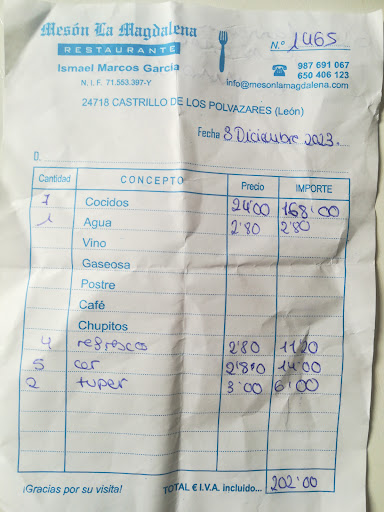 Mesón La Magdalena
RESTAURANTE
Ismael Marcos García
N. I. F. 71.553.397-Y
N.º 1465
987 691 067
650 406 123
info@mesonlamagdalena.com
24718 CASTRILLO DE LOS POLVAZARES (León)
Fecha 8 Diciembre 2023
D.
Cantidad CONCEPTO Precio IMPORTE
7 Cocidos 24'00 168'00
1 Agua 2'80 2'80
Vino
Gaseosa
Postre
Café
Chupitos
4 refresco 2'80 11'20
5 cer 2'80 14'00
2 tuper 3'00 6'00
¡Gracias por su visita! TOTAL € I.V.A. incluido... 202'00